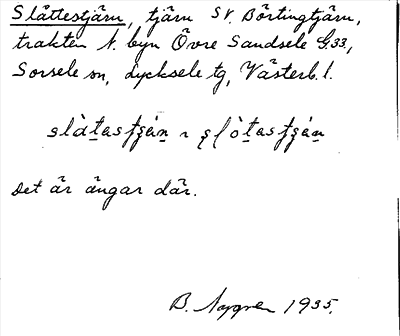 Slåttestjärn, tjärn SV. Börtingtjärn,
trakten N. byn Övre Sandsele G33,
Sorsele sn, Lycksele tg, Västerb. l.
Det är ängar där.
B. Nygren 1935.